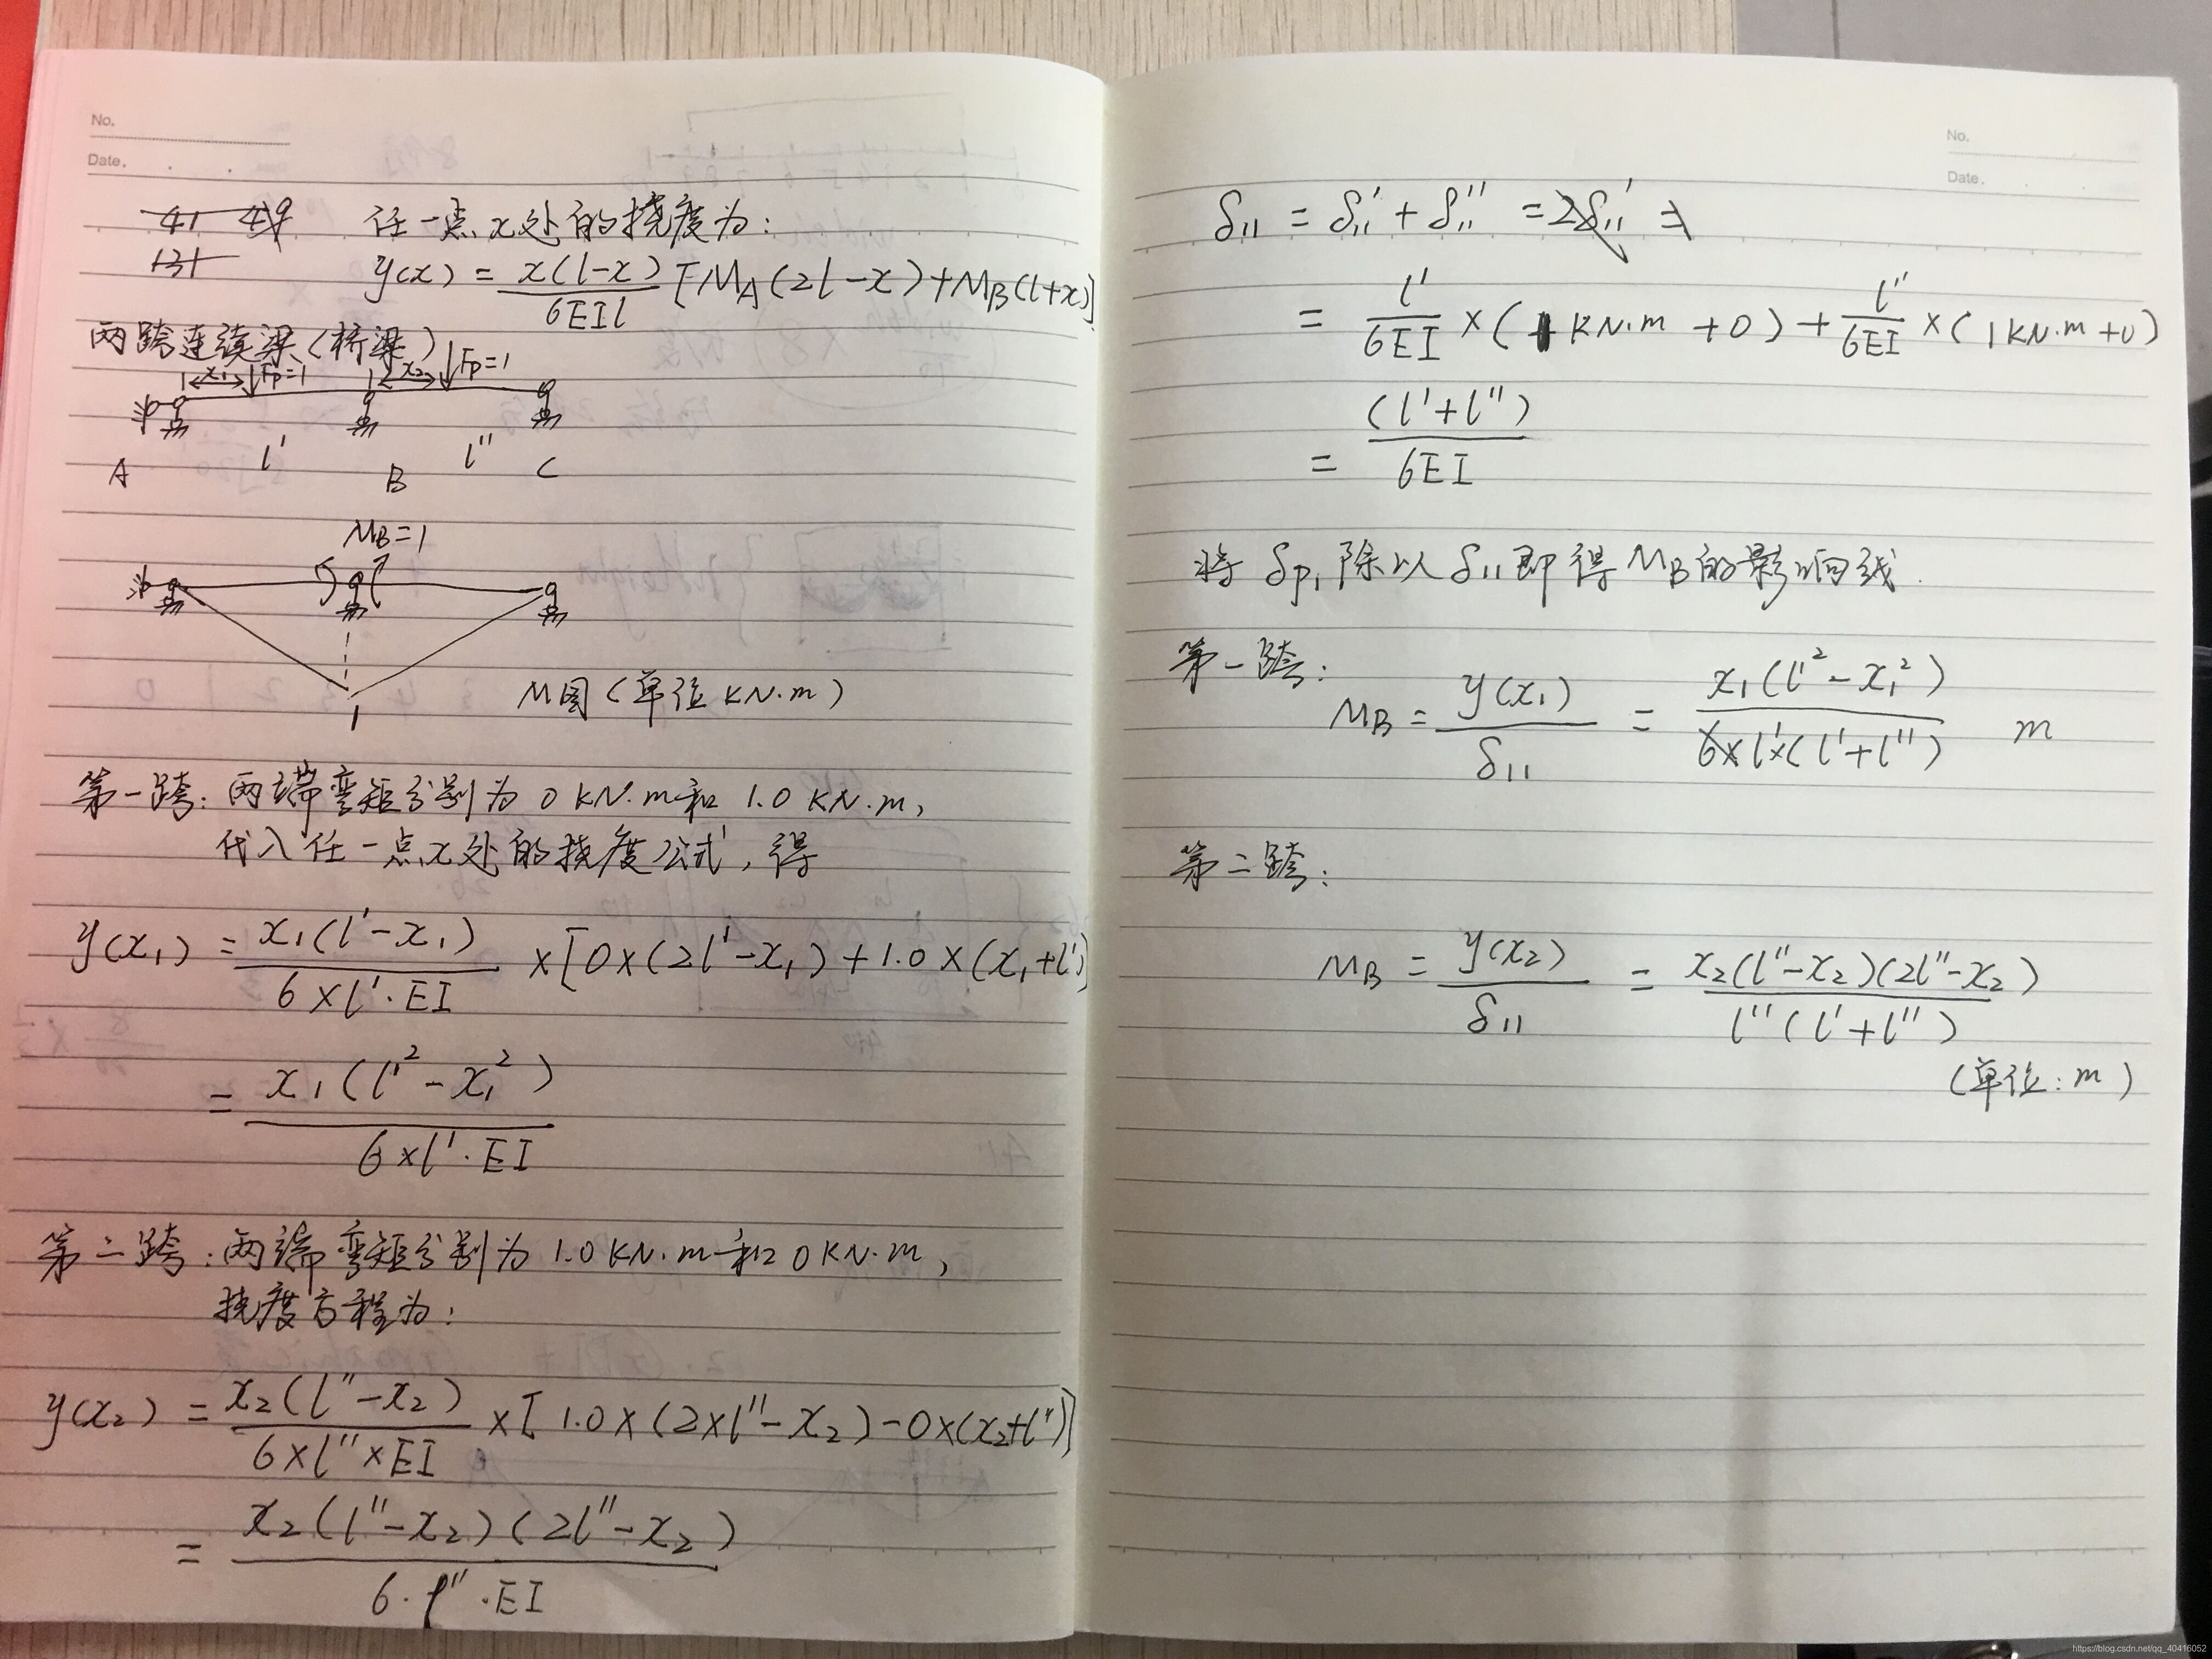 No.
Date.
41 49
131
任一点x处的挠度为:
y(x) = x(l-x)/6EIl [MA(2l-x)+MB(l+x)]
两跨连续梁(桥梁)
x1 Fp=1 x2 Fp=1
l' l''
A B C
MB=1
1
M图(单位KN·m)
第一跨: 两端弯矩分别为0KN·m和1.0KN·m,
代入任一点x处的挠度公式,得
y(x1) = x1(l'-x1)/6×l'·EI ×[0×(2l'-x1)+1.0×(x1+l')
= x1(l'²-x1²)/6×l'·EI
第二跨:两端弯矩分别为1.0KN·m和0KN·m,
挠度方程为:
y(x2) = x2(l''-x2)/6×l''×EI ×[1.0×(2×l''-x2)-0×(x2+l'')]
= x2(l''-x2)(2l''-x2)/6·l''·EI
No.
Date.
δ11 = δ11' + δ11'' = 2δ11' =
= l'/6EI ×(1KN·m+0)+ l''/6EI ×(1KN·m+0)
= (l'+l'')/6EI
将δp1除以δ11即得MB的影响线.
第一跨:
MB = y(x1)/δ11 = x1(l'²-x1²)/6×l'×(l'+l'') m
第二跨:
MB = y(x2)/δ11 = x2(l''-x2)(2l''-x2)/l''(l'+l'')
(单位:m)
https://blog.csdn.net/qq_40416052